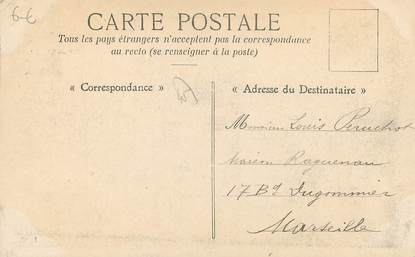 6€
CARTE POSTALE
Tous les pays étrangers n'acceptent pas la correspondance
au recto (se renseigner à la poste)
« Correspondance »
« Adresse du Destinataire »
Monsieur Louis Peruchot
Maison Raguenau
17 Bd Dugommier
Marseille